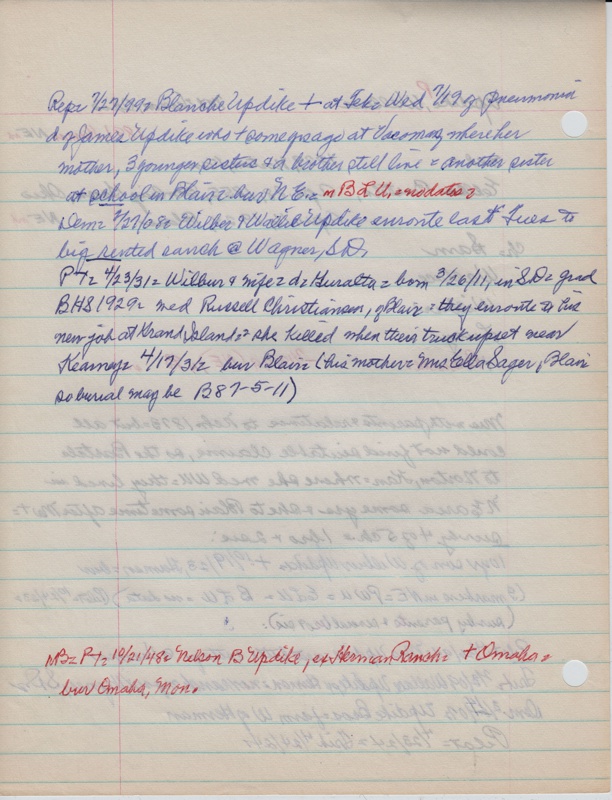 Rep= 7/27/99= Blanche Updike + at Tek= Wed 7/19 of pneumonia
d of James Updike who + some yrs ago at Vacoma, where her
mother, 3 younger sisters & a brother still live = another sister
at school in Blair= bur NE= m B L U, = no dates=
Dem= 2/27/08= Wilber & Wallie Updike enroute last Tues to
big rented ranch @ Wagner, S.D.
PT= 4/23/31= Wilbur & wife= d= = born 3/26/11, in S.D.= grad
BHS 1929= med Russell Christiansen, of Blair = they enroute to his
new job at Grand Island= = she killed when their truck upset near
Kearney= 4/17/31= bur Blair= (his mother= Mrs Ella Sager, Blair
so burial may be B87-5-11)
PT= 10/21/48= Nelson B Updike, ex Herman Ranch= + Omaha=
bur Omaha, Mon.